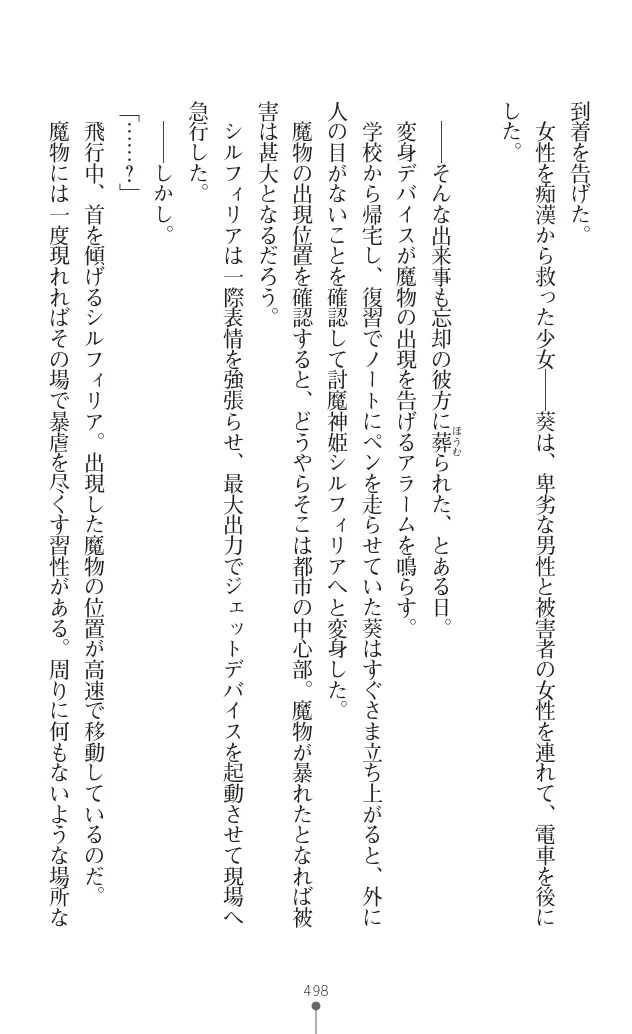 到着を告げた。
女性を痴漢から救った少女――葵は、卑劣な男性と被害者の女性を連れて、電車を後に
した。
――そんな出来事も忘却の彼方に葬られた、とある日。
ほうむ
変身デバイスが魔物の出現を告げるアラームを鳴らす。
学校から帰宅し、復習でノートにペンを走らせていた葵はすぐさま立ち上がると、外に
人の目がないことを確認して討魔神姫シルフィリアへと変身した。
魔物の出現位置を確認すると、どうやらそこは都市の中心部。魔物が暴れたとなれば被
害は甚大となるだろう。
シルフィリアは一際表情を強張らせ、最大出力でジェットデバイスを起動させて現場へ
急行した。
――しかし。
「……？」
飛行中、首を傾げるシルフィリア。出現した魔物の位置が高速で移動しているのだ。
魔物には一度現れればその場で暴虐を尽くす習性がある。周りに何もないような場所な
498